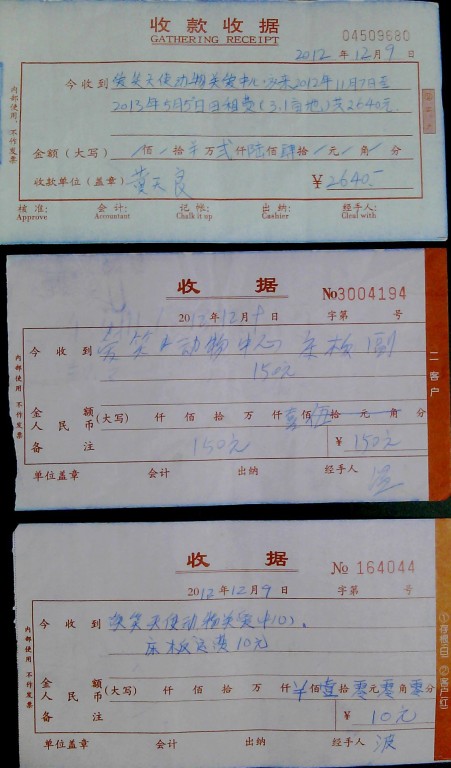 收款收据
GATHERING RECEIPT
04509680
2012 年 12 月 9 日
今收到 爱笑天使动物关爱中心 从来2012年11月7日至
2013年5月5日田租费(3.1亩地)共2640元
金额(大写) 佰 拾 万 贰 仟 陆 佰 肆 拾 元 角 分
收款单位(盖章) 黄天良 ¥ 2640.-
核准: 会计: 记帐: 出纳: 经手人:
Approve Accountant Chalk it up Cashier Cleal with
内部使用,不作发票
收据
No 3004194
2012年12月9日 字第 号
今收到 爱笑 动物中心 床板
150元
金额
人民币 (大写) 仟 佰 拾 万 仟 壹 佰 伍 拾 元 角 分
备注 150元 ¥ 150元
单位盖章 会计 出纳 经手人
内部使用 不作发票
二 客户
收据
No 164044
2012年12月9日 字第 号
今收到 爱笑天使动物关爱中心.
床板运费10元
金额
人民币 (大写) 仟 佰 拾 万 仟 ¥ 佰 壹 拾 零 元 零 角 零 分
备注 ¥ 10元
单位盖章 会计 出纳 经手人 波
内部使用 不作发票
①存根(白) ②客户(红)